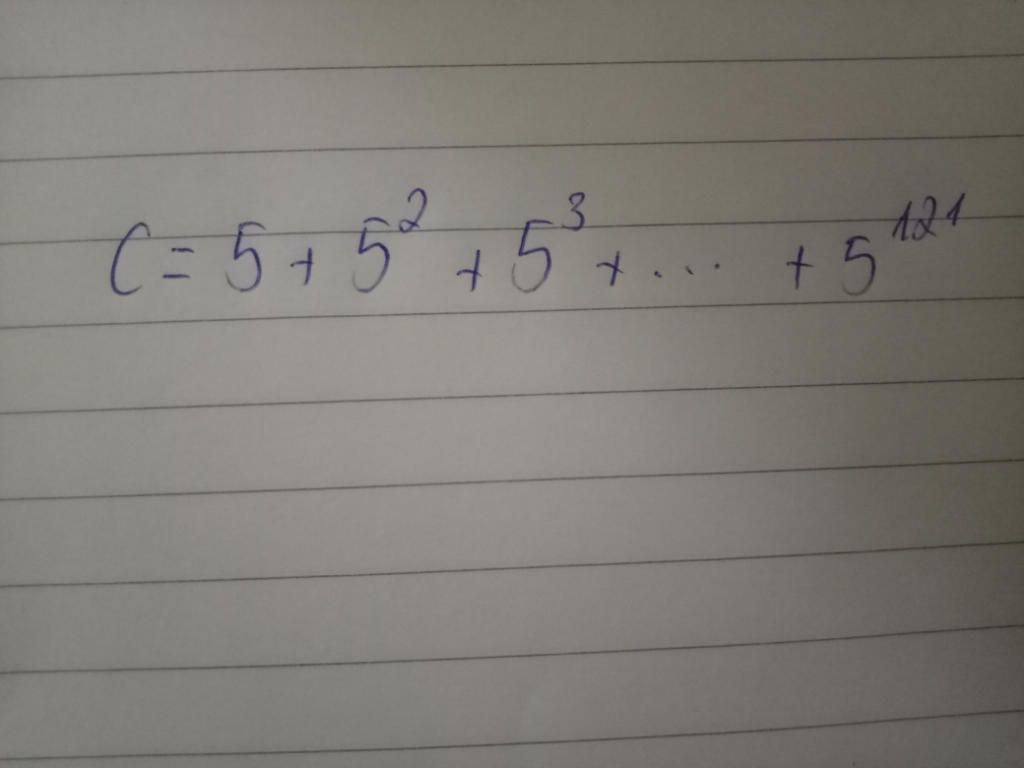 C = 5 + 5² + 5³ + ... + 5¹²¹